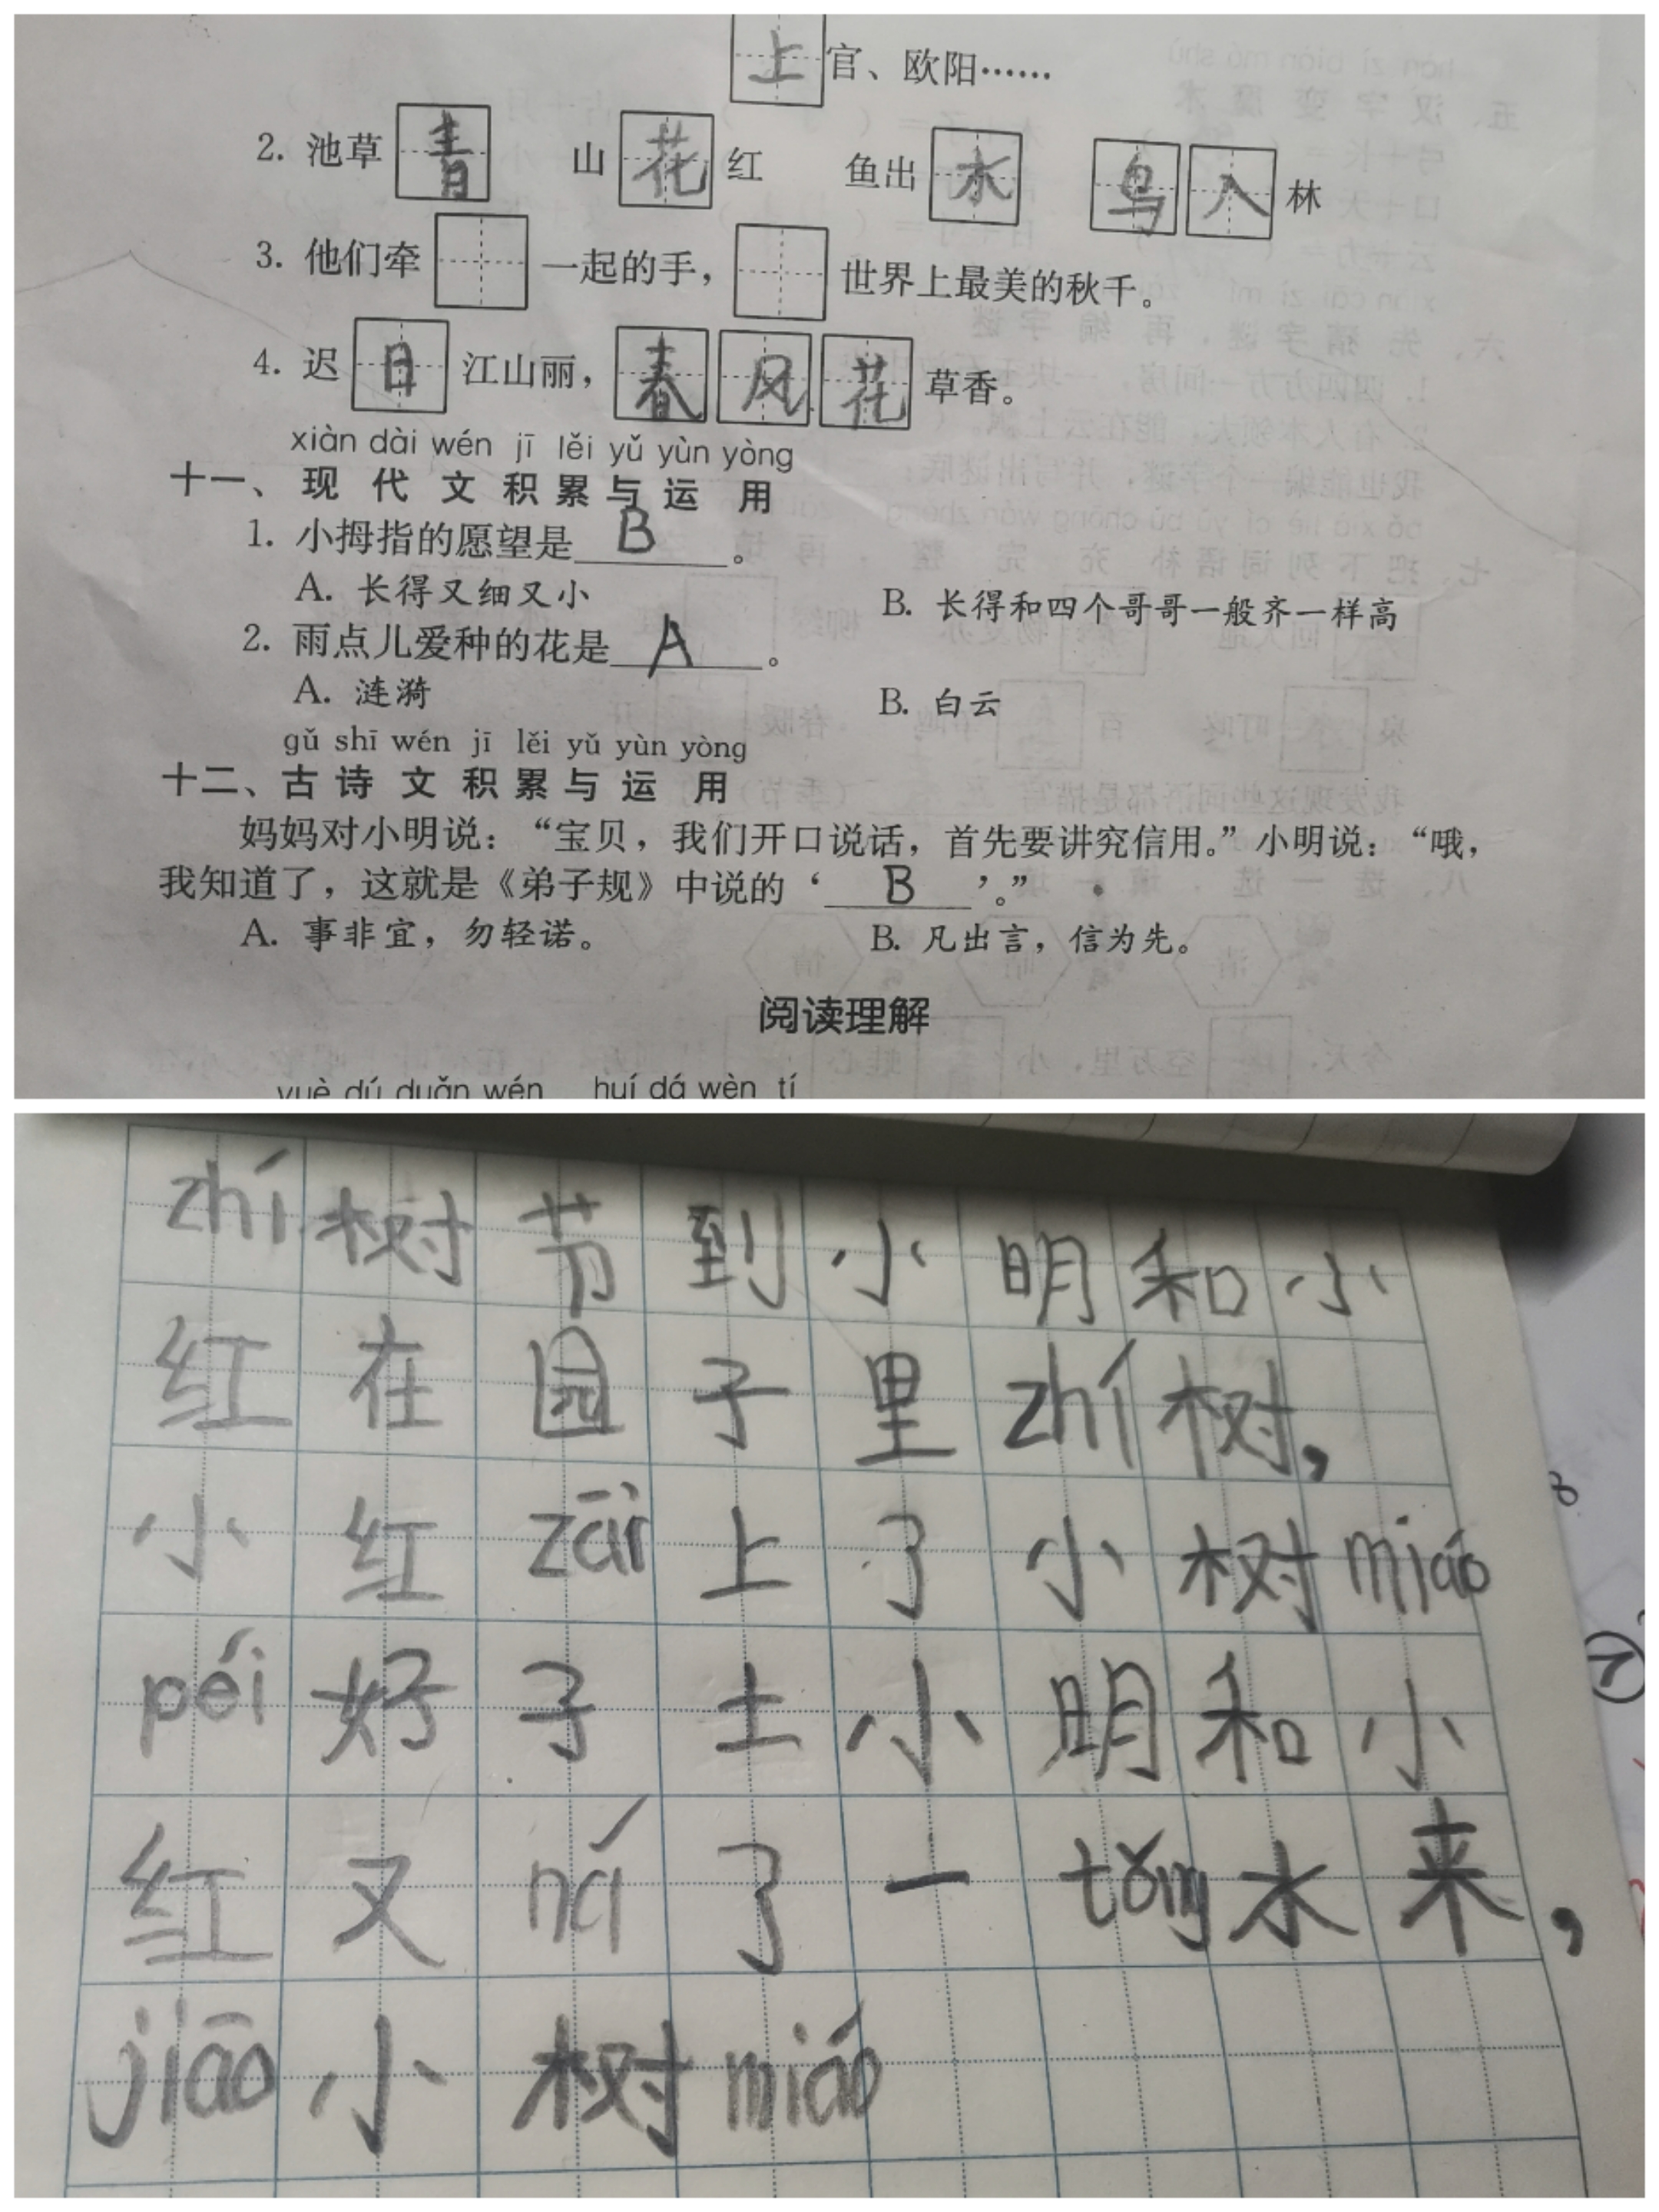 上官、欧阳……
2. 池草青 山花红 鱼出水 鸟入林
3. 他们牵 一起的手， 世界上最美的秋千。
4. 迟日江山丽，春风花草香。
xiàn dài wén jī lěi yǔ yùn yòng
十一、现代文积累与运用
1. 小拇指的愿望是 B 。
A. 长得又细又小 B. 长得和四个哥哥一般齐一样高
2. 雨点儿爱种的花是 A 。
A. 涟漪 B. 白云
gǔ shī wén jī lěi yǔ yùn yòng
十二、古诗文积累与运用
妈妈对小明说：“宝贝，我们开口说话，首先要讲究信用。”小明说：“哦，
我知道了，这就是《弟子规》中说的‘ B ’。”
A. 事非宜，勿轻诺。 B. 凡出言，信为先。
阅读理解
yuè dú duǎn wén huí dá wèn tí
zhí树节到小明和小
红在园子里zhí树，
小红zāi上了小树miáo
péi好子土小明和小
红又ná了一tǒng水来，
jiāo小树miáo